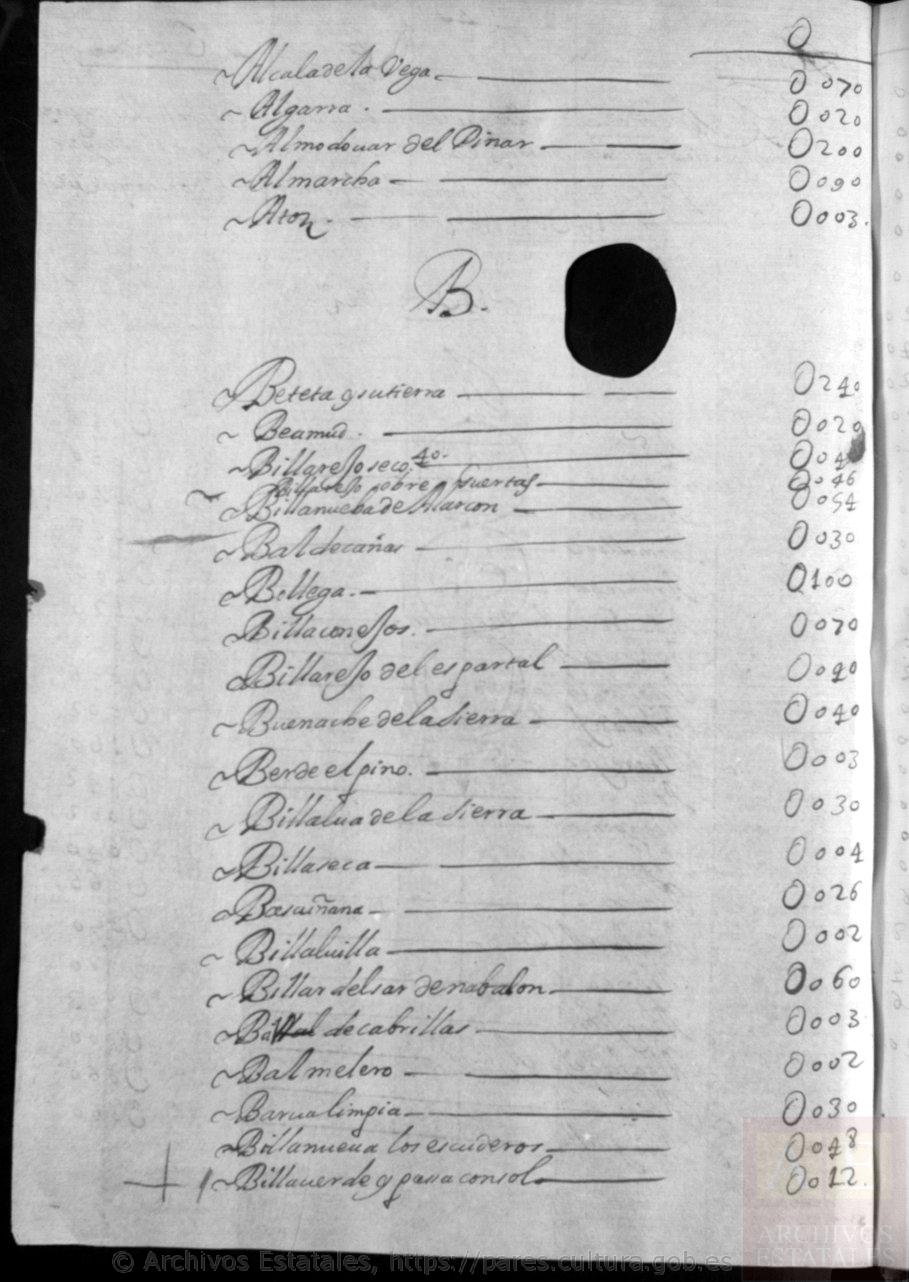 0
~Alcala de la Vega 0070
~Algarra. 0020
~Almodouar del Pinar 0200
~Almarcha 0090
~Aton. 0003.
B.
~Beteta y su tierra 0240
~Beamud. 0020
~Billarejo seco. 40. 004
Billarejo sobre huertas 0046
~Billanueba de Alarcon 0054
~Baldecañas 0030
~Bellega. 0100
~Billaconejos. 0070
~Billarejo del espartal 0090
~Buenache de la Sierra 0040
~Berde el pino. 0003
~Billalua de la Sierra 0030
~Billaseca 0004
~Bascuñana 0026
~Billaluilla 0002
~Billar del sar de nabalon 0060
~Bal de cabrillas 0003
~Balmelero 0002
~Barua limpia 0030
~Billanueua los escuderos 0048
~Billauerde y pasaconsol 0012.
© Archivos Estatales, https://pares.cultura.gob.es
ARCHIVOS
ESTATALES